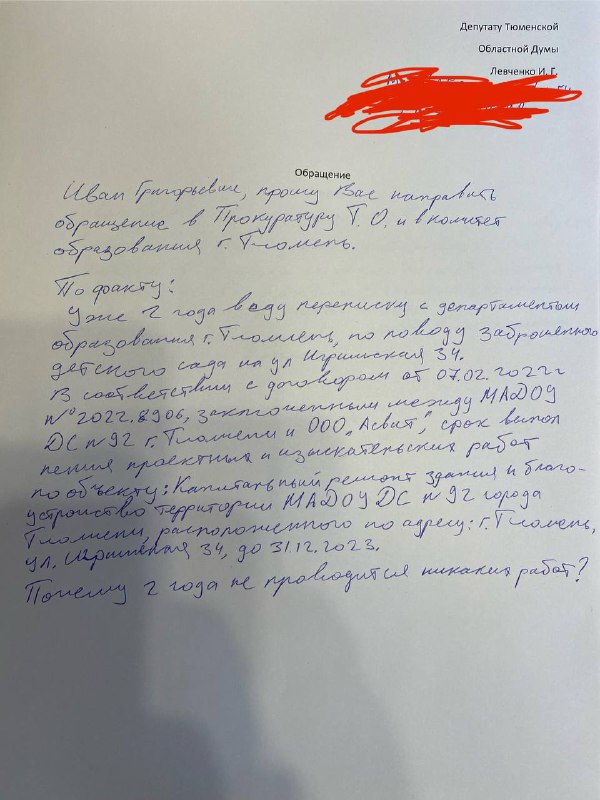 Депутату Тюменской
Областной Думы
Левченко И. Г.
Обращение
Иван Григорьевич, прошу Вас направить
обращение в Прокуратуру Т.О. и в комитет
образования г. Тюмень.
По факту:
Уже 2 года веду переписку с департаментом
образования г. Тюмень, по поводу заброшенного
детского сада на ул Игримская 34.
В соответствии с договором от 07.02.2022г
№ 2022.8906, заключенным между МАДОУ
ДС №92 г. Тюмени и ООО „Асвит", срок выпол
нения проектных и изыскательских работ
по объекту: Капитальный ремонт здания и благо-
устройство территории МАДОУ ДС №92 города
Тюмени, расположенного по адресу: г. Тюмень,
ул. Игримская 34, до 31.12.2023.
Почему 2 года не проводится никаких работ?